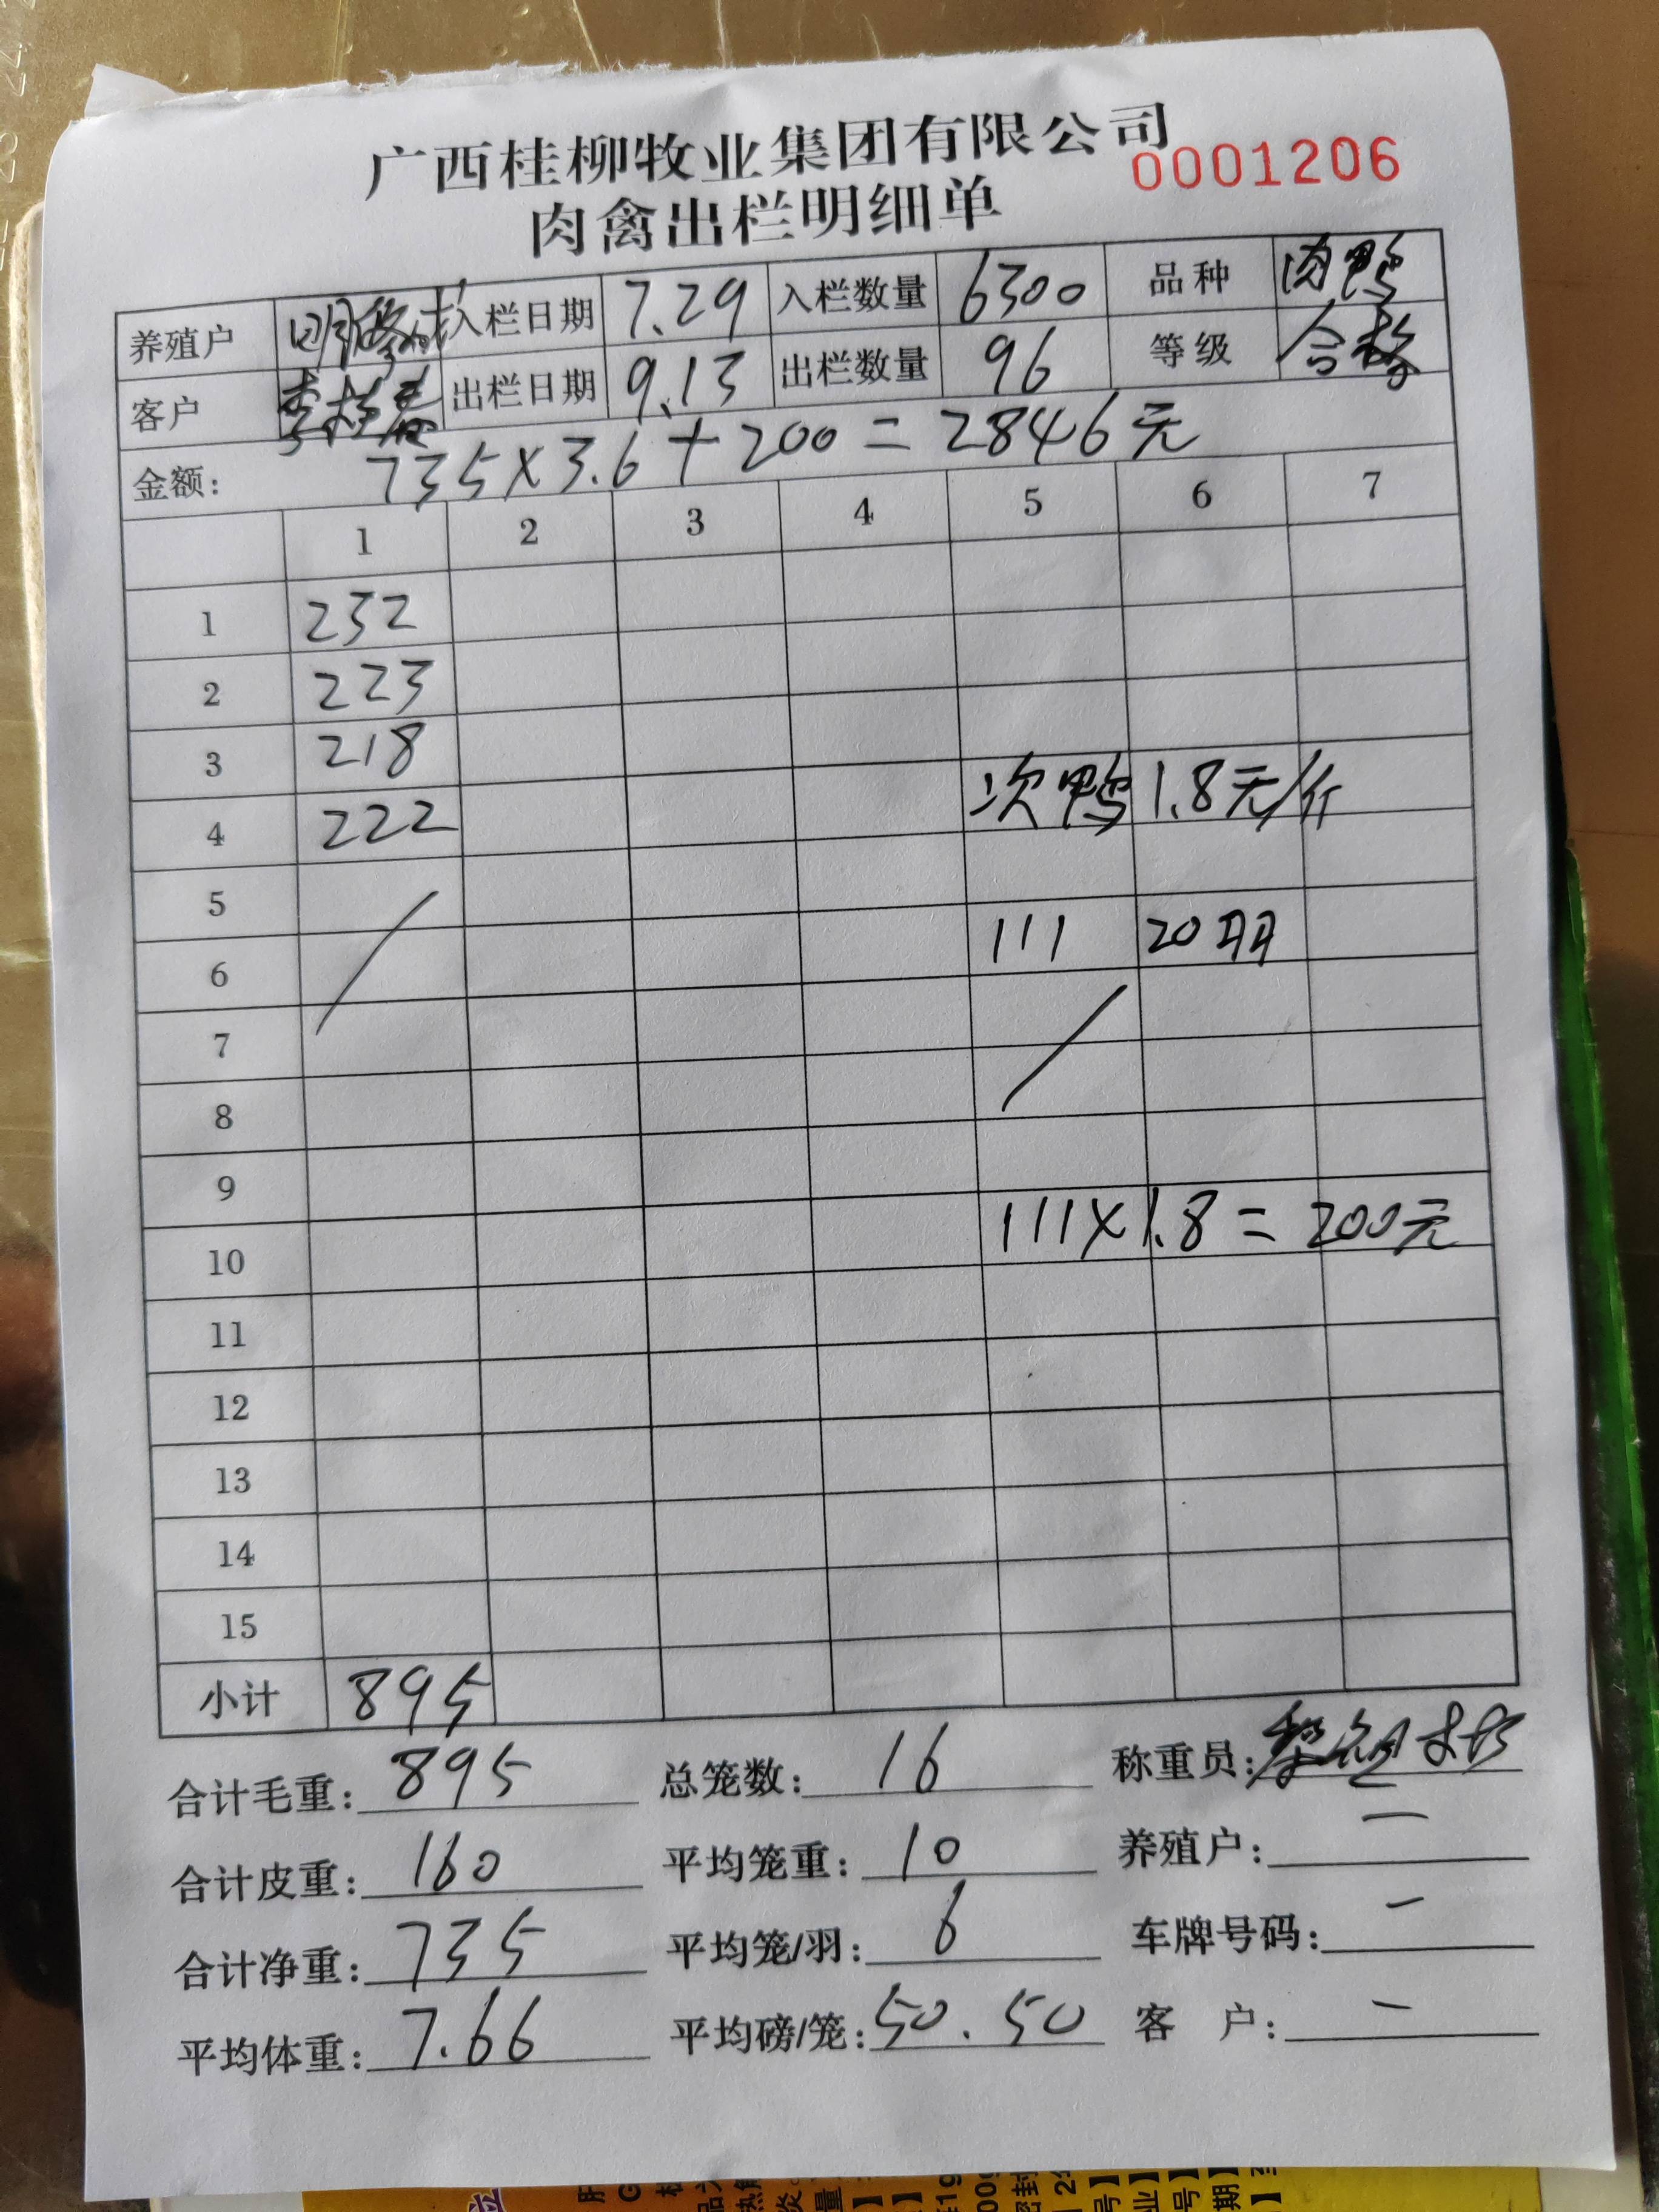 广西桂柳牧业集团有限公司
0001206
肉禽出栏明细单
养殖户 入栏日期 7.29 入栏数量 6300 品种 肉鸭
客户 出栏日期 9.13 出栏数量 96 等级 合格
金额: 735×3.6+200=2846元
1 2 3 4 5 6 7
1 232
2 223
3 218 次鸭 1.8元/斤
4 222
5
6 111 20羽
7
8
9
10 111×1.8=200元
11
12
13
14
15
小计 895
合计毛重: 895 总笼数: 16 称重员:
合计皮重: 160 平均笼重: 10 养殖户: —
合计净重: 735 平均笼/羽: 6 车牌号码: —
平均体重: 7.66 平均磅/笼: 50.50 客 户: —